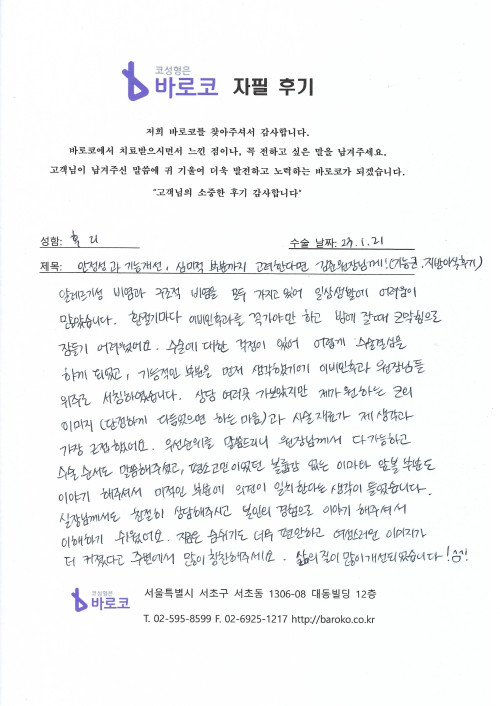 코성형은
바로코 자필 후기
저희 바로코를 찾아주셔서 감사합니다.
바로코에서 치료받으시면서 느낀 점이나, 꼭 전하고 싶은 말을 남겨주세요.
고객님이 남겨주신 말씀에 귀 기울여 더욱 발전하고 노력하는 바로코가 되겠습니다.
"고객님의 소중한 후기 감사합니다"
성함: 수술 날짜: 23.1.21
제목: 안정성과 기능개선, 심미적 부분까지 고려한다면 원장님께! (기능코, 지방이식후기)
알레르기성 비염과 구조적 비염을 모두 가지고 있어 일상생활에 어려움이
많았습니다. 환절기마다 이비인후과를 꼭가야만 하고 밤에 잘때 코막힘으로
잠들기 어려웠어요. 수술에 대한 걱정이 있어 어렵게 수술결심을
하게 되었고, 기능적인 부분을 먼저 생각했기에 이비인후과 원장님들
위주로 서칭하였습니다. 상담 여러곳 가보았지만 제가 원하는 코의
이미지 (단정하게 다듬었으면 하는 마음)과 시술 재료가 제 생각과
가장 근접했어요. 우선순위를 말씀드리니 원장님께서 다 가능하고
수술 순서도 말씀해주셨고, 평소고민이었던 볼륨감 없는 이마와 앞볼 부분도
이야기 해주셔서 미적인 부분에 의견이 일치한다는 생각이 들었습니다.
실장님께서도 친절히 상담해주시고 본인의 경험으로 이야기 해주셔서
이해하기 쉬웠어요. 지금은 숨쉬기도 너무 편안하고 여성스러운 이미지가
더 커졌다고 주변에서 많이 칭찬해주세요. 삶의 질이 많이 개선되었습니다!
코성형은
바로코
서울특별시 서초구 서초동 1306-08 대동빌딩 12층
T. 02-595-8599 F. 02-6925-1217 http://baroko.co.kr